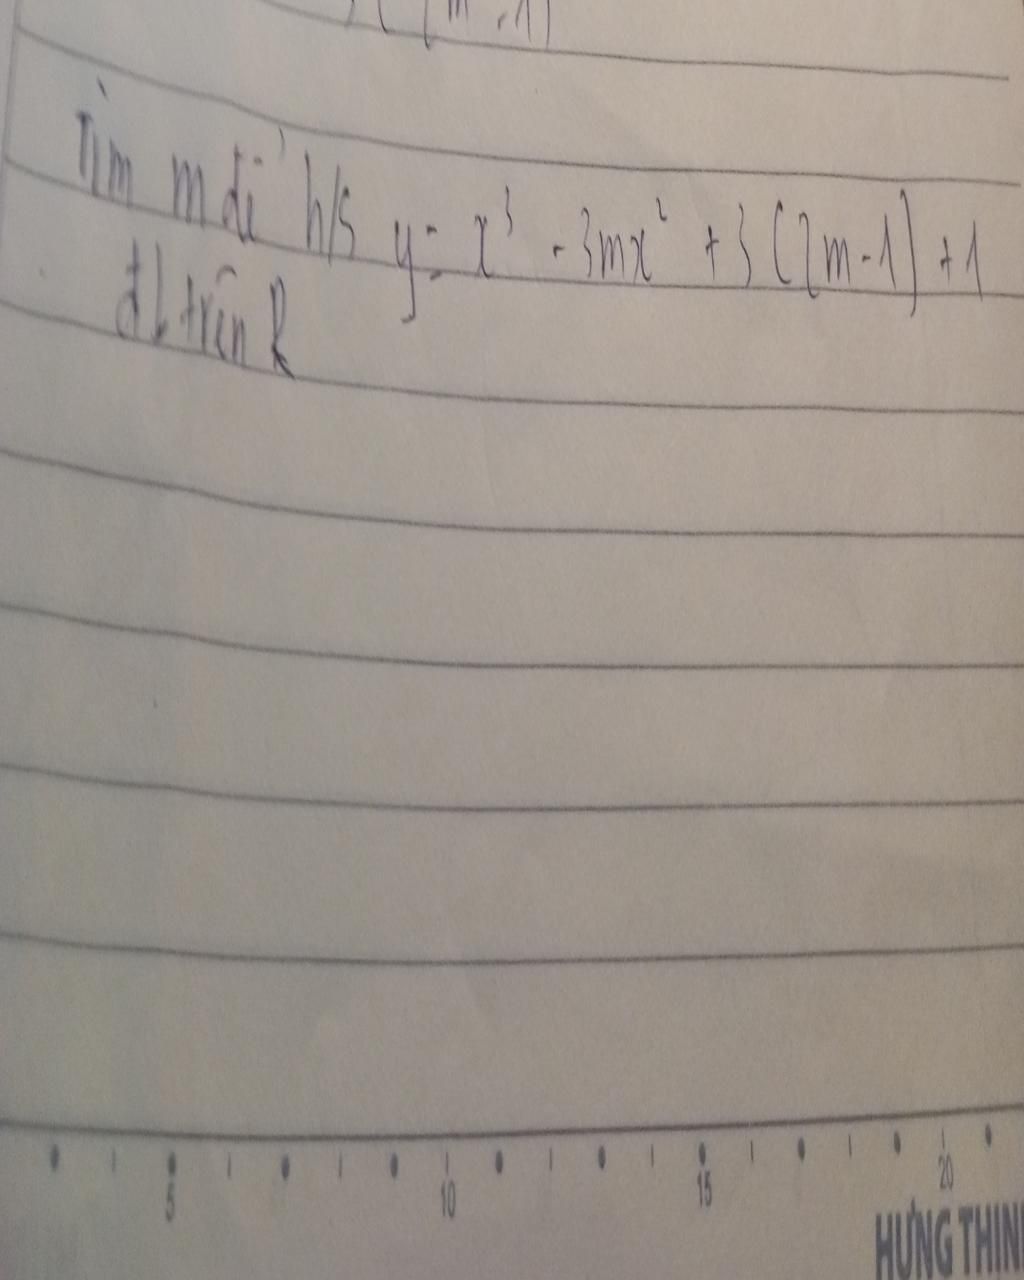 Tìm m để h/s y = x³ - 3mx² + 3(2m-1) + 1
đb trên R
5 10 15 20
HƯNG THỊN